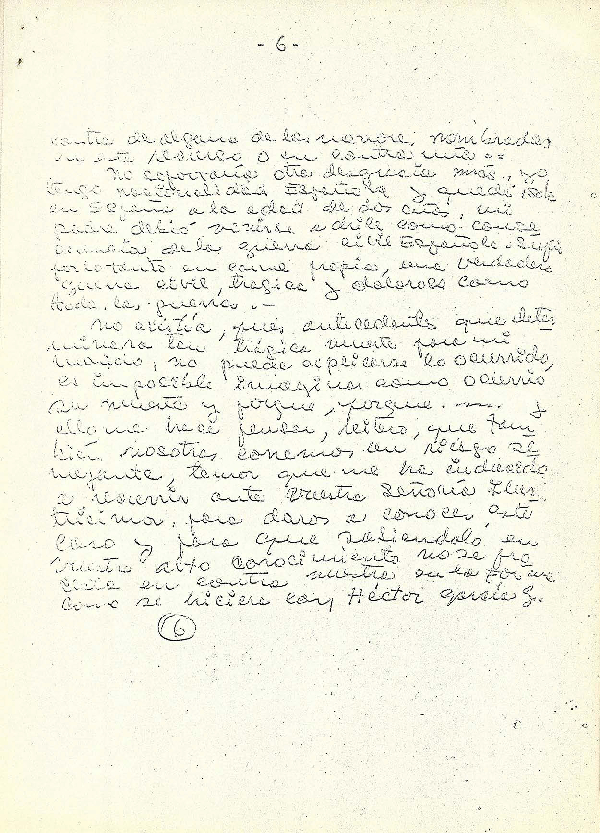 - 6 -
contra de alguna de las nombradas
en este recurso o en contra mia.-
No soportaria otra desgracia mas, yo
tengo nacionalidad Española y quedé sola
en España a la edad de dos años, mi
padre debió venirse a Chile como conse
cuencia de la guerra civil Española. Sufi
por lo tanto en carne propia, una verdadera
guerra civil, trágica y dolorosa como
toda la guerra.-
No existia, pues, antecedentes que deter
minera tan trágica muerte para mi
marido, no puede explicarse lo ocurrido,
es imposible imaginar como ocurrió
su muerte y porque, porque. y
ello me hace pensar, que tam
bién nosotras corremos un riesgo se
mejante, temor que me ha inducido
a recurrir ante Vuestra Señoría Ilus
trisima, para daros a conocer este
caso y para que sabiendolo, en
vuestro alto conocimiento no se pro
ceda en contra nuestra en la forma
como se hiciera con, Héctor García G.
6